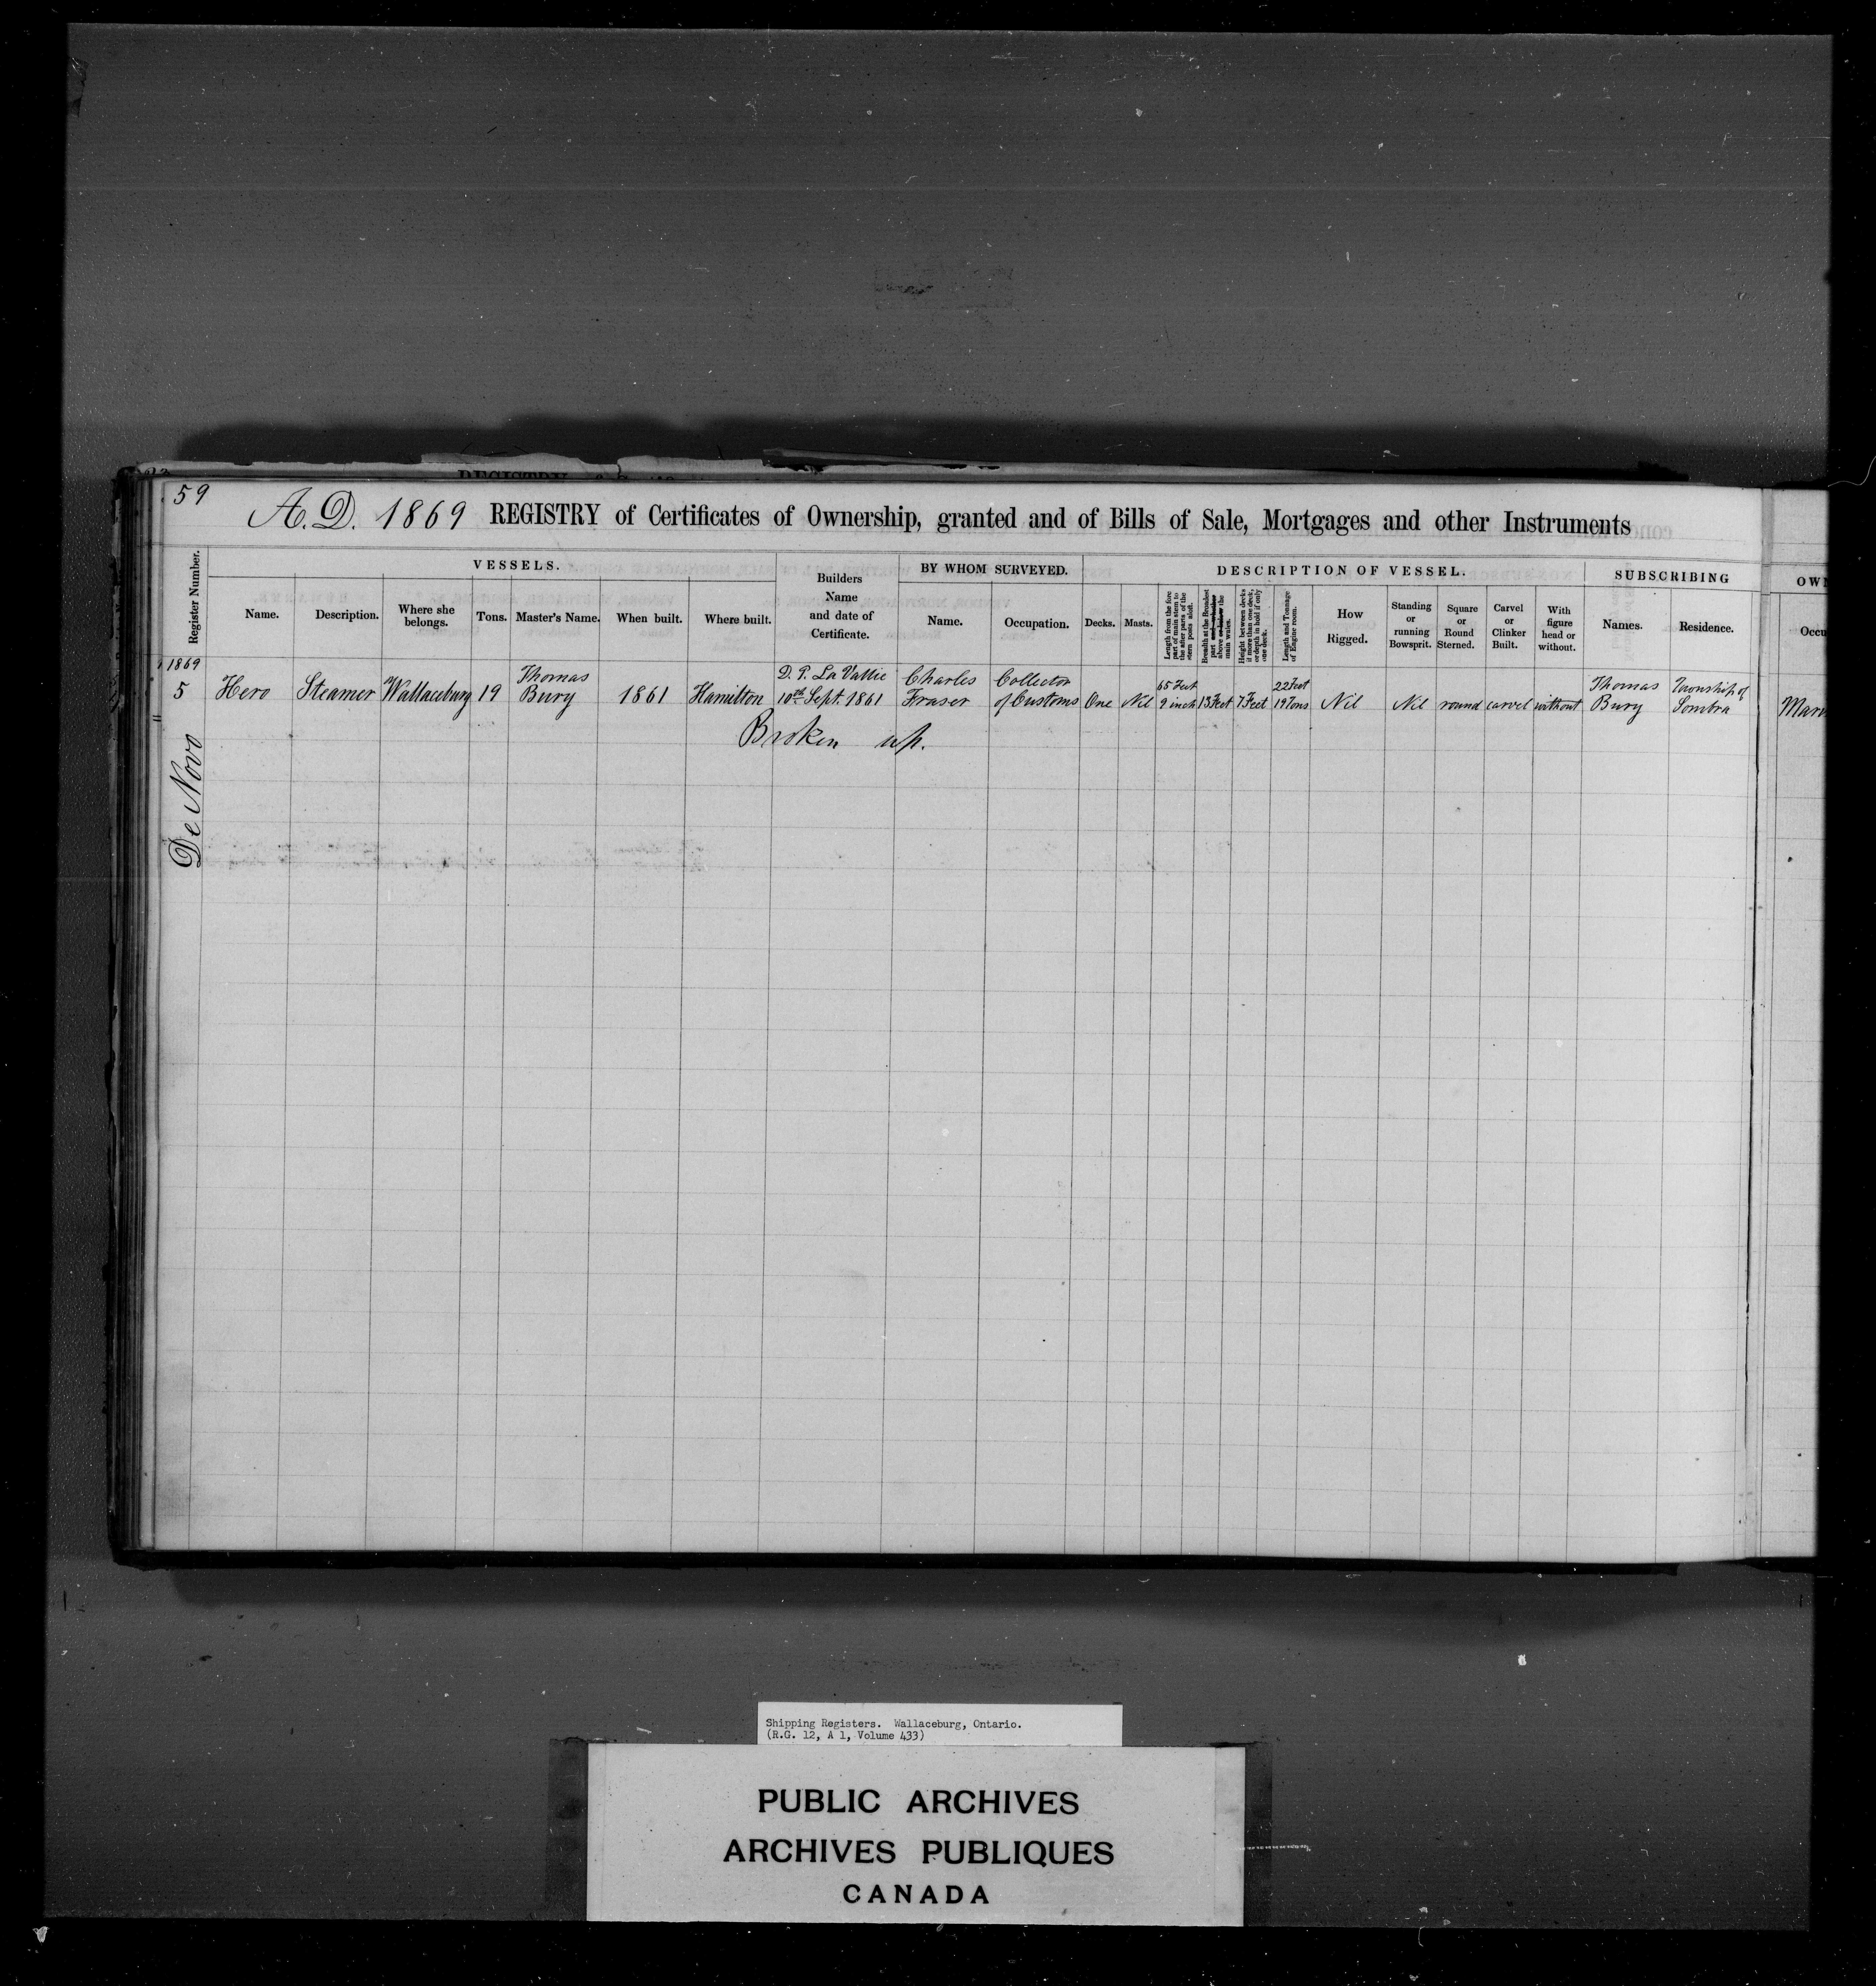 59
A.D. 1869 REGISTRY of Certificates of Ownership, granted and of Bills of Sale, Mortgages and other Instruments
Register Number.
VESSELS.
Name.
Description.
Where she belongs.
Tons.
Master's Name.
When built.
Where built.
Builders Name and date of Certificate.
BY WHOM SURVEYED.
Name.
Occupation.
DESCRIPTION OF VESSEL.
Decks.
Masts.
Length from the fore part of main stem to the after parts of the stern posts aloft.
Breadth at the Broadest part and whether above or below the main wales.
Height between decks if more than one deck, or depth in hold if only one deck.
Length and Tonnage of Engine room.
How Rigged.
Standing or running Bowsprit.
Square or Round Sterned.
Carvel or Clinker Built.
With figure head or without.
SUBSCRIBING
Names.
Residence.
OWN
Occu
1869
5
Hero
Steamer
Wallaceburg
19
Thomas Bury
1861
Hamilton
D. P. La Vallie
10th Sept. 1861
Charles Fraser
Collector of Customs
One
Nil
65 Feet 9 inch
13 Feet
7 Feet
22 Feet 19 Tons
Nil
Nil
round
carvel
without
Thomas Bury
Township of Sombra
Mari
Broken up.
De Novo
Shipping Registers. Wallaceburg, Ontario.
(R.G. 12, A 1, Volume 433)
PUBLIC ARCHIVES
ARCHIVES PUBLIQUES
CANADA